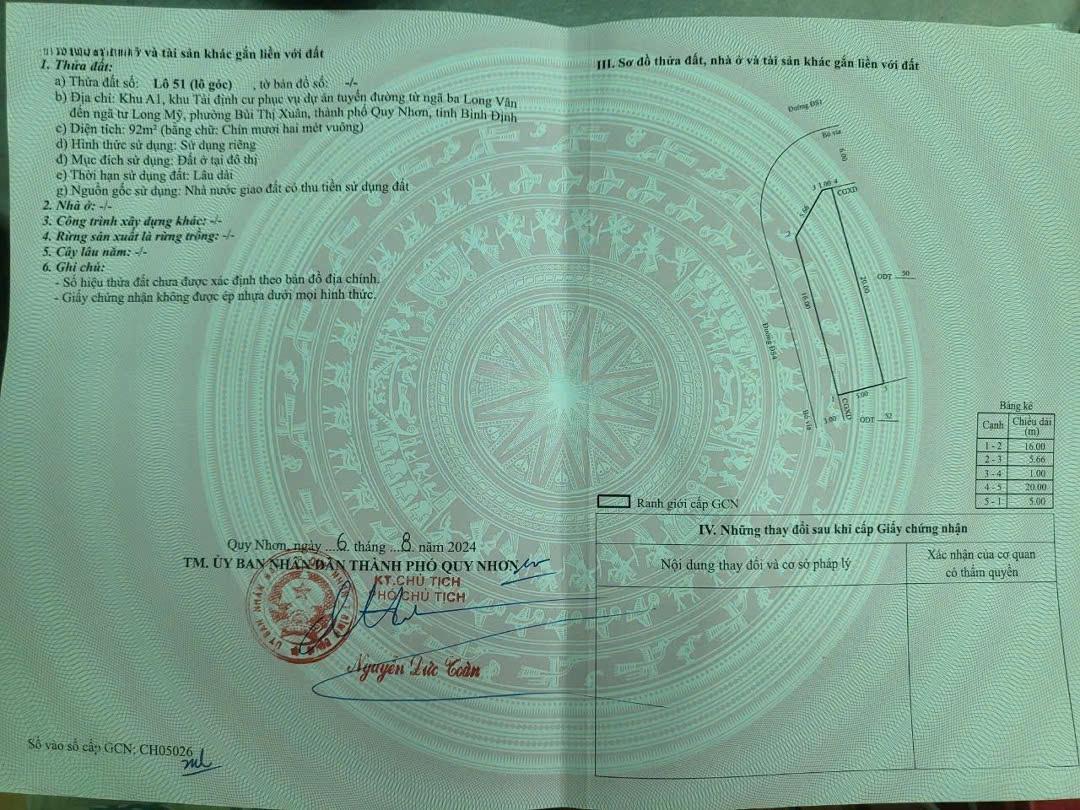 và tài sản khác gắn liền với đất
1. Thửa đất:
a) Thửa đất số: Lô 51 (lô góc) , tờ bản đồ số: -/-
b) Địa chỉ: Khu A1, khu Tái định cư phục vụ dự án tuyến đường từ ngã ba Long Vân
đến ngã tư Long Mỹ, phường Bùi Thị Xuân, thành phố Quy Nhơn, tỉnh Bình Định
c) Diện tích: 92m² (bằng chữ: Chín mươi hai mét vuông)
d) Hình thức sử dụng: Sử dụng riêng
đ) Mục đích sử dụng: Đất ở tại đô thị
e) Thời hạn sử dụng đất: Lâu dài
g) Nguồn gốc sử dụng: Nhà nước giao đất có thu tiền sử dụng đất
2. Nhà ở: -/-
3. Công trình xây dựng khác: -/-
4. Rừng sản xuất là rừng trồng: -/-
5. Cây lâu năm: -/-
6. Ghi chú:
- Số hiệu thửa đất chưa được xác định theo bản đồ địa chính.
- Giấy chứng nhận không được ép nhựa dưới mọi hình thức.
Quy Nhơn, ngày ...6. tháng ...8. năm 2024
TM. ỦY BAN NHÂN DÂN THÀNH PHỐ QUY NHƠN
KT.CHỦ TỊCH
PHÓ CHỦ TỊCH
Nguyễn Đức Toàn
Số vào sổ cấp GCN: CH05026
III. Sơ đồ thửa đất, nhà ở và tài sản khác gắn liền với đất
Đường ĐS1
Bó vỉa
6.00
3 1.00 4
CGXD
5.66
2
16.00
20.00
ODT 50
Đường ĐS4
1
5.00
5
CGXD
Bó vỉa
3.00
ODT 52
Bảng kê
Cạnh Chiều dài
(m)
1 - 2 16.00
2 - 3 5.66
3 - 4 1.00
4 - 5 20.00
5 - 1 5.00
Ranh giới cấp GCN
IV. Những thay đổi sau khi cấp Giấy chứng nhận
Nội dung thay đổi và cơ sở pháp lý
Xác nhận của cơ quan
có thẩm quyền